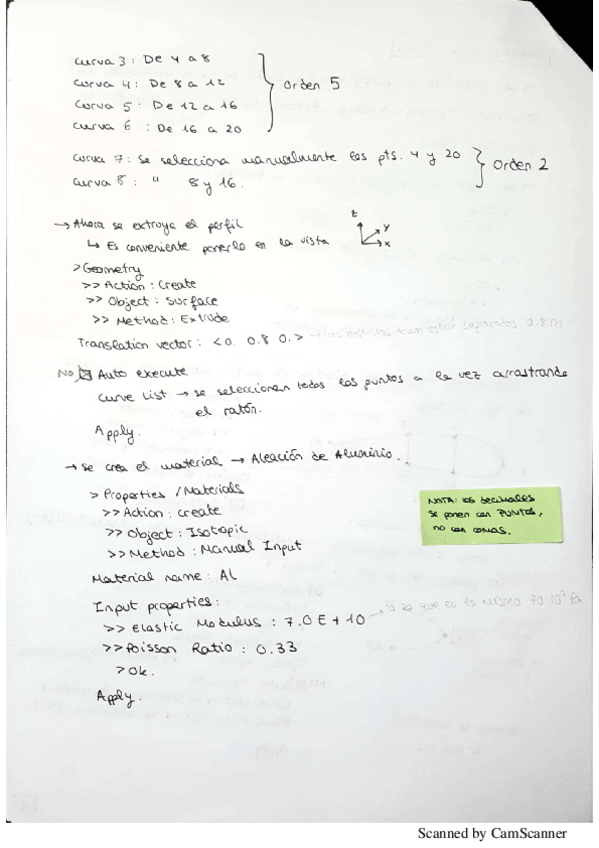 Curva 3 : De 4 a 8
Curva 4 : De 8 a 12
Curva 5 : De 12 a 16
Curva 6 : De 16 a 20
Orden 5
Curva 7 : Se selecciona manualmente los pts. 4 y 20
Curva 8 : " 8 y 16.
Orden 2
→ Ahora se extruye el perfil
↳ Es conveniente ponerlo en la vista
z y x
> Geometry
>> Action : Create
>> Object : Surface
>> Method : Extrude
Translation vector : <0. 0.8 0.> → las costillas deben estar separadas 0.8 m
No ☒ Auto execute
Curve List → se seleccionan todos los puntos a la vez arrastrando
el ratón.
Apply.
→ Se crea el material → Aleación de Aluminio.
> Properties / Materials
>> Action : Create
>> Object : Isotopic
>> Method : Manual Input
NOTA: los decimales
se ponen con PUNTOS,
no con comas.
Material name : AL
Input properties :
>> Elastic Modulus : 7.0E+10 → o lo que es lo mismo 70·10⁹ Pa
>> Poisson Ratio : 0.33
> Ok.
Apply.
Scanned by CamScanner